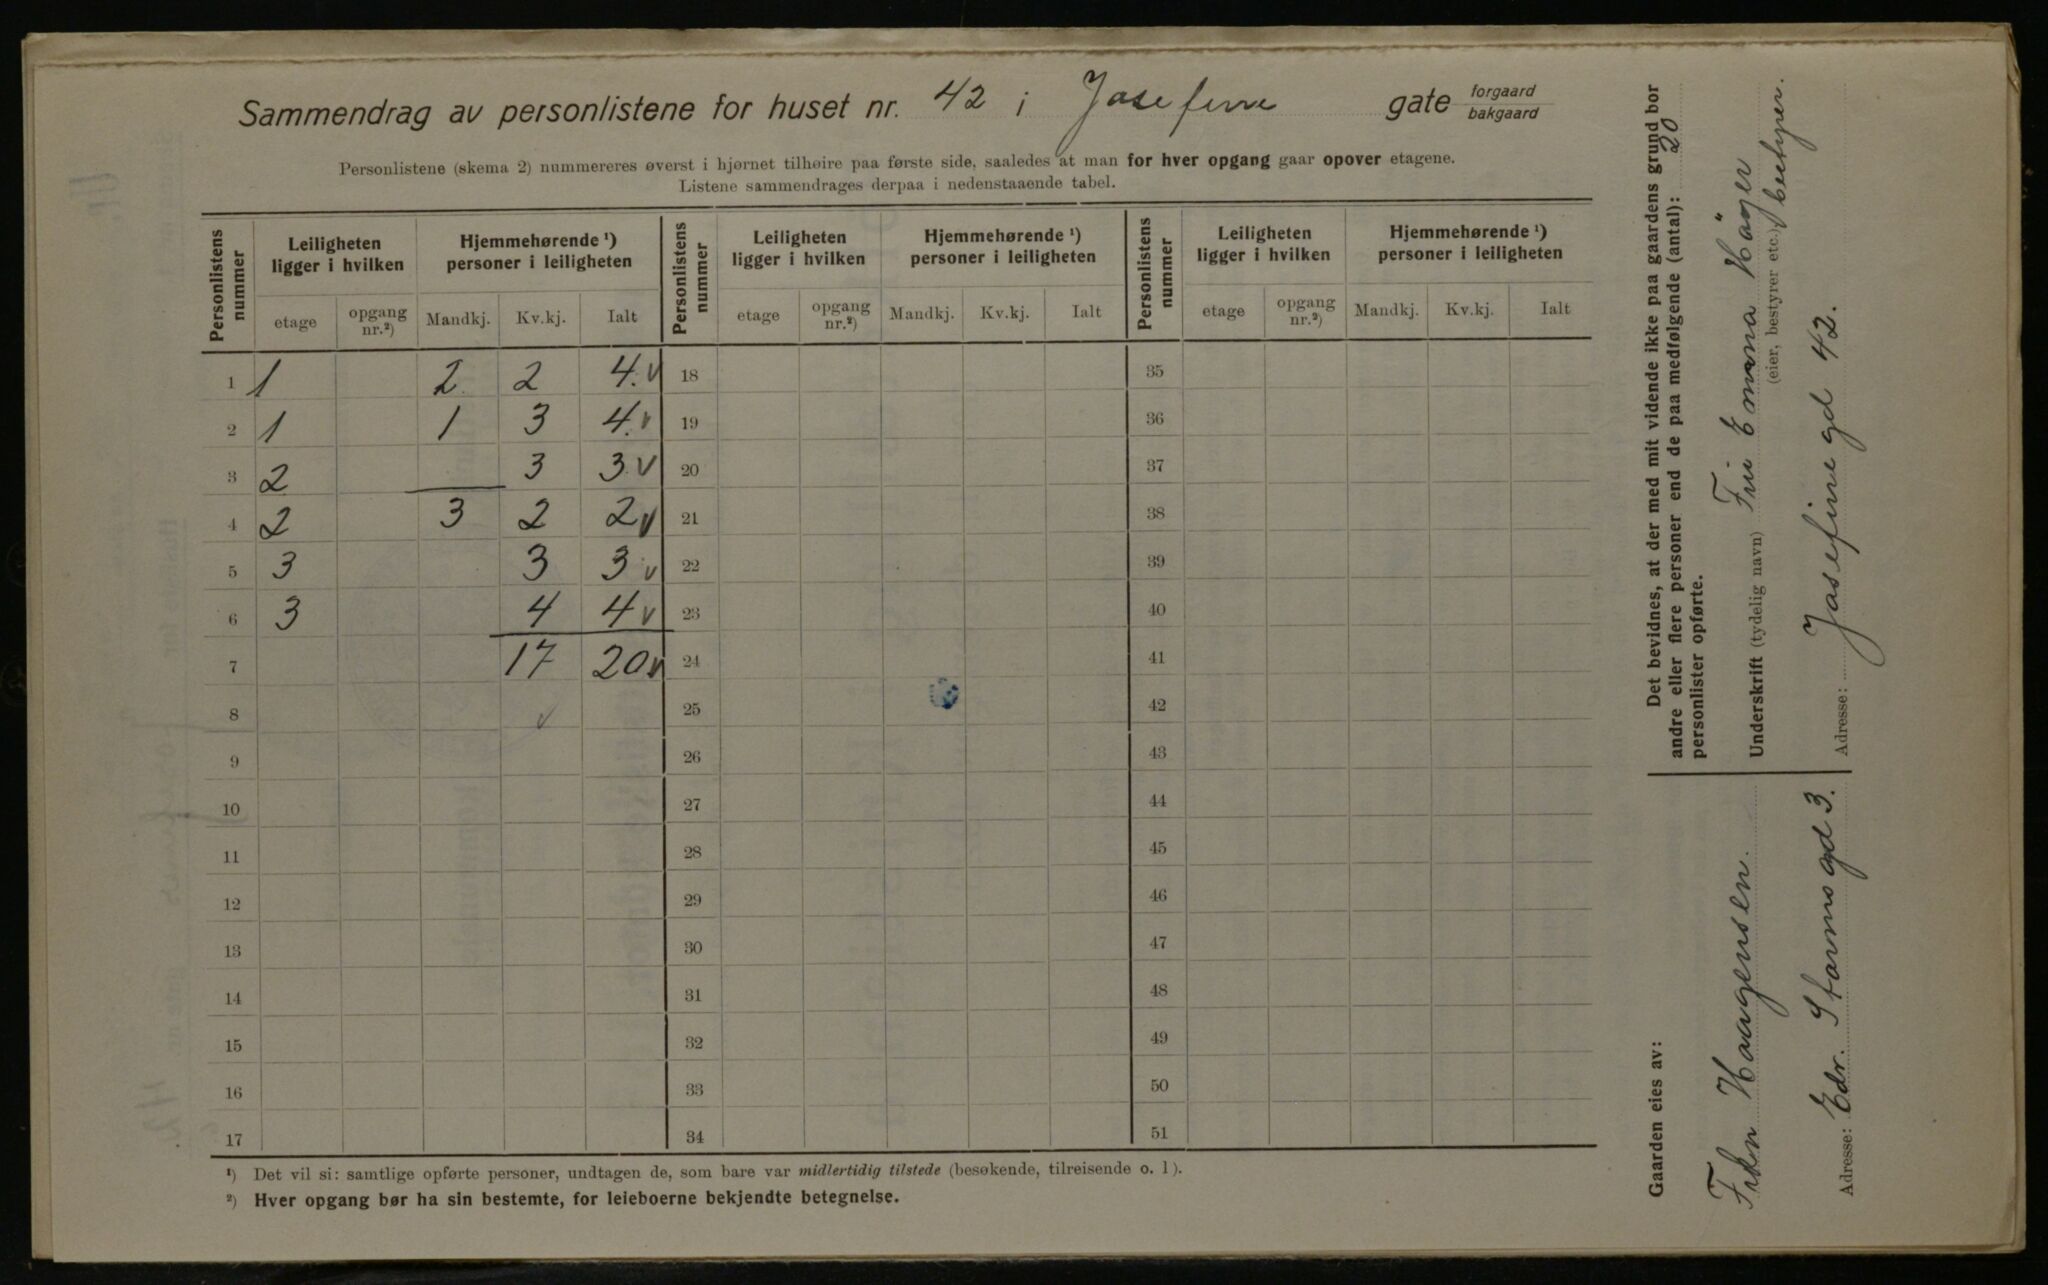 Sammendrag av personlistene for huset nr. 42 i Josefine gate forgaard bakgaard
Personlistene (skema 2) nummereres øverst i hjørnet tilhøire paa første side, saaledes at man for hver opgang gaar opover etagene.
Listene sammendrages derpaa i nedenstaaende tabel.
Personlistens nummer | Leiligheten ligger i hvilken | Hjemmehørende ¹) personer i leiligheten | Personlistens nummer | Leiligheten ligger i hvilken | Hjemmehørende ¹) personer i leiligheten | Personlistens nummer | Leiligheten ligger i hvilken | Hjemmehørende ¹) personer i leiligheten
etage | opgang nr.²) | Mandkj. | Kv.kj. | Ialt | etage | opgang nr.²) | Mandkj. | Kv.kj. | Ialt | etage | opgang nr.²) | Mandkj. | Kv.kj. | Ialt
1 1 2 2 4. v 18 35
2 1 1 3 4. v 19 36
3 2 3 3 v 20 37
4 2 3 2 2 v 21 38
5 3 3 3 v 22 39
6 3 4 4 v 23 40
7 17 20 v 24 41
8 v 25 42
9 26 43
10 27 44
11 28 45
12 29 46
13 30 47
14 31 48
15 32 49
16 33 50
17 34 51
¹) Det vil si: samtlige opførte personer, undtagen de, som bare var midlertidig tilstede (besøkende, tilreisende o. l).
²) Hver opgang bør ha sin bestemte, for leieboerne bekjendte betegnelse.
Det bevidnes, at der med mit vidende ikke paa gaardens grund bor
andre eller flere personer end de paa medfølgende (antal): 20
personlister opførte.
Underskrift (tydelig navn) Fru Emma Häger bestyrer.
(eier, bestyrer etc.)
Adresse: Josefinegd 42.
Gaarden eies av:
Frkn Haagensen.
Adresse: Edv. Stormsgd 3.